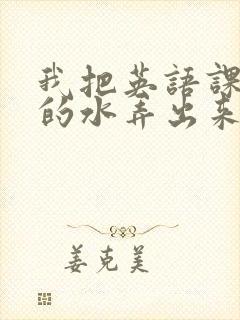 我把英語課
的水弄出來
姜克美